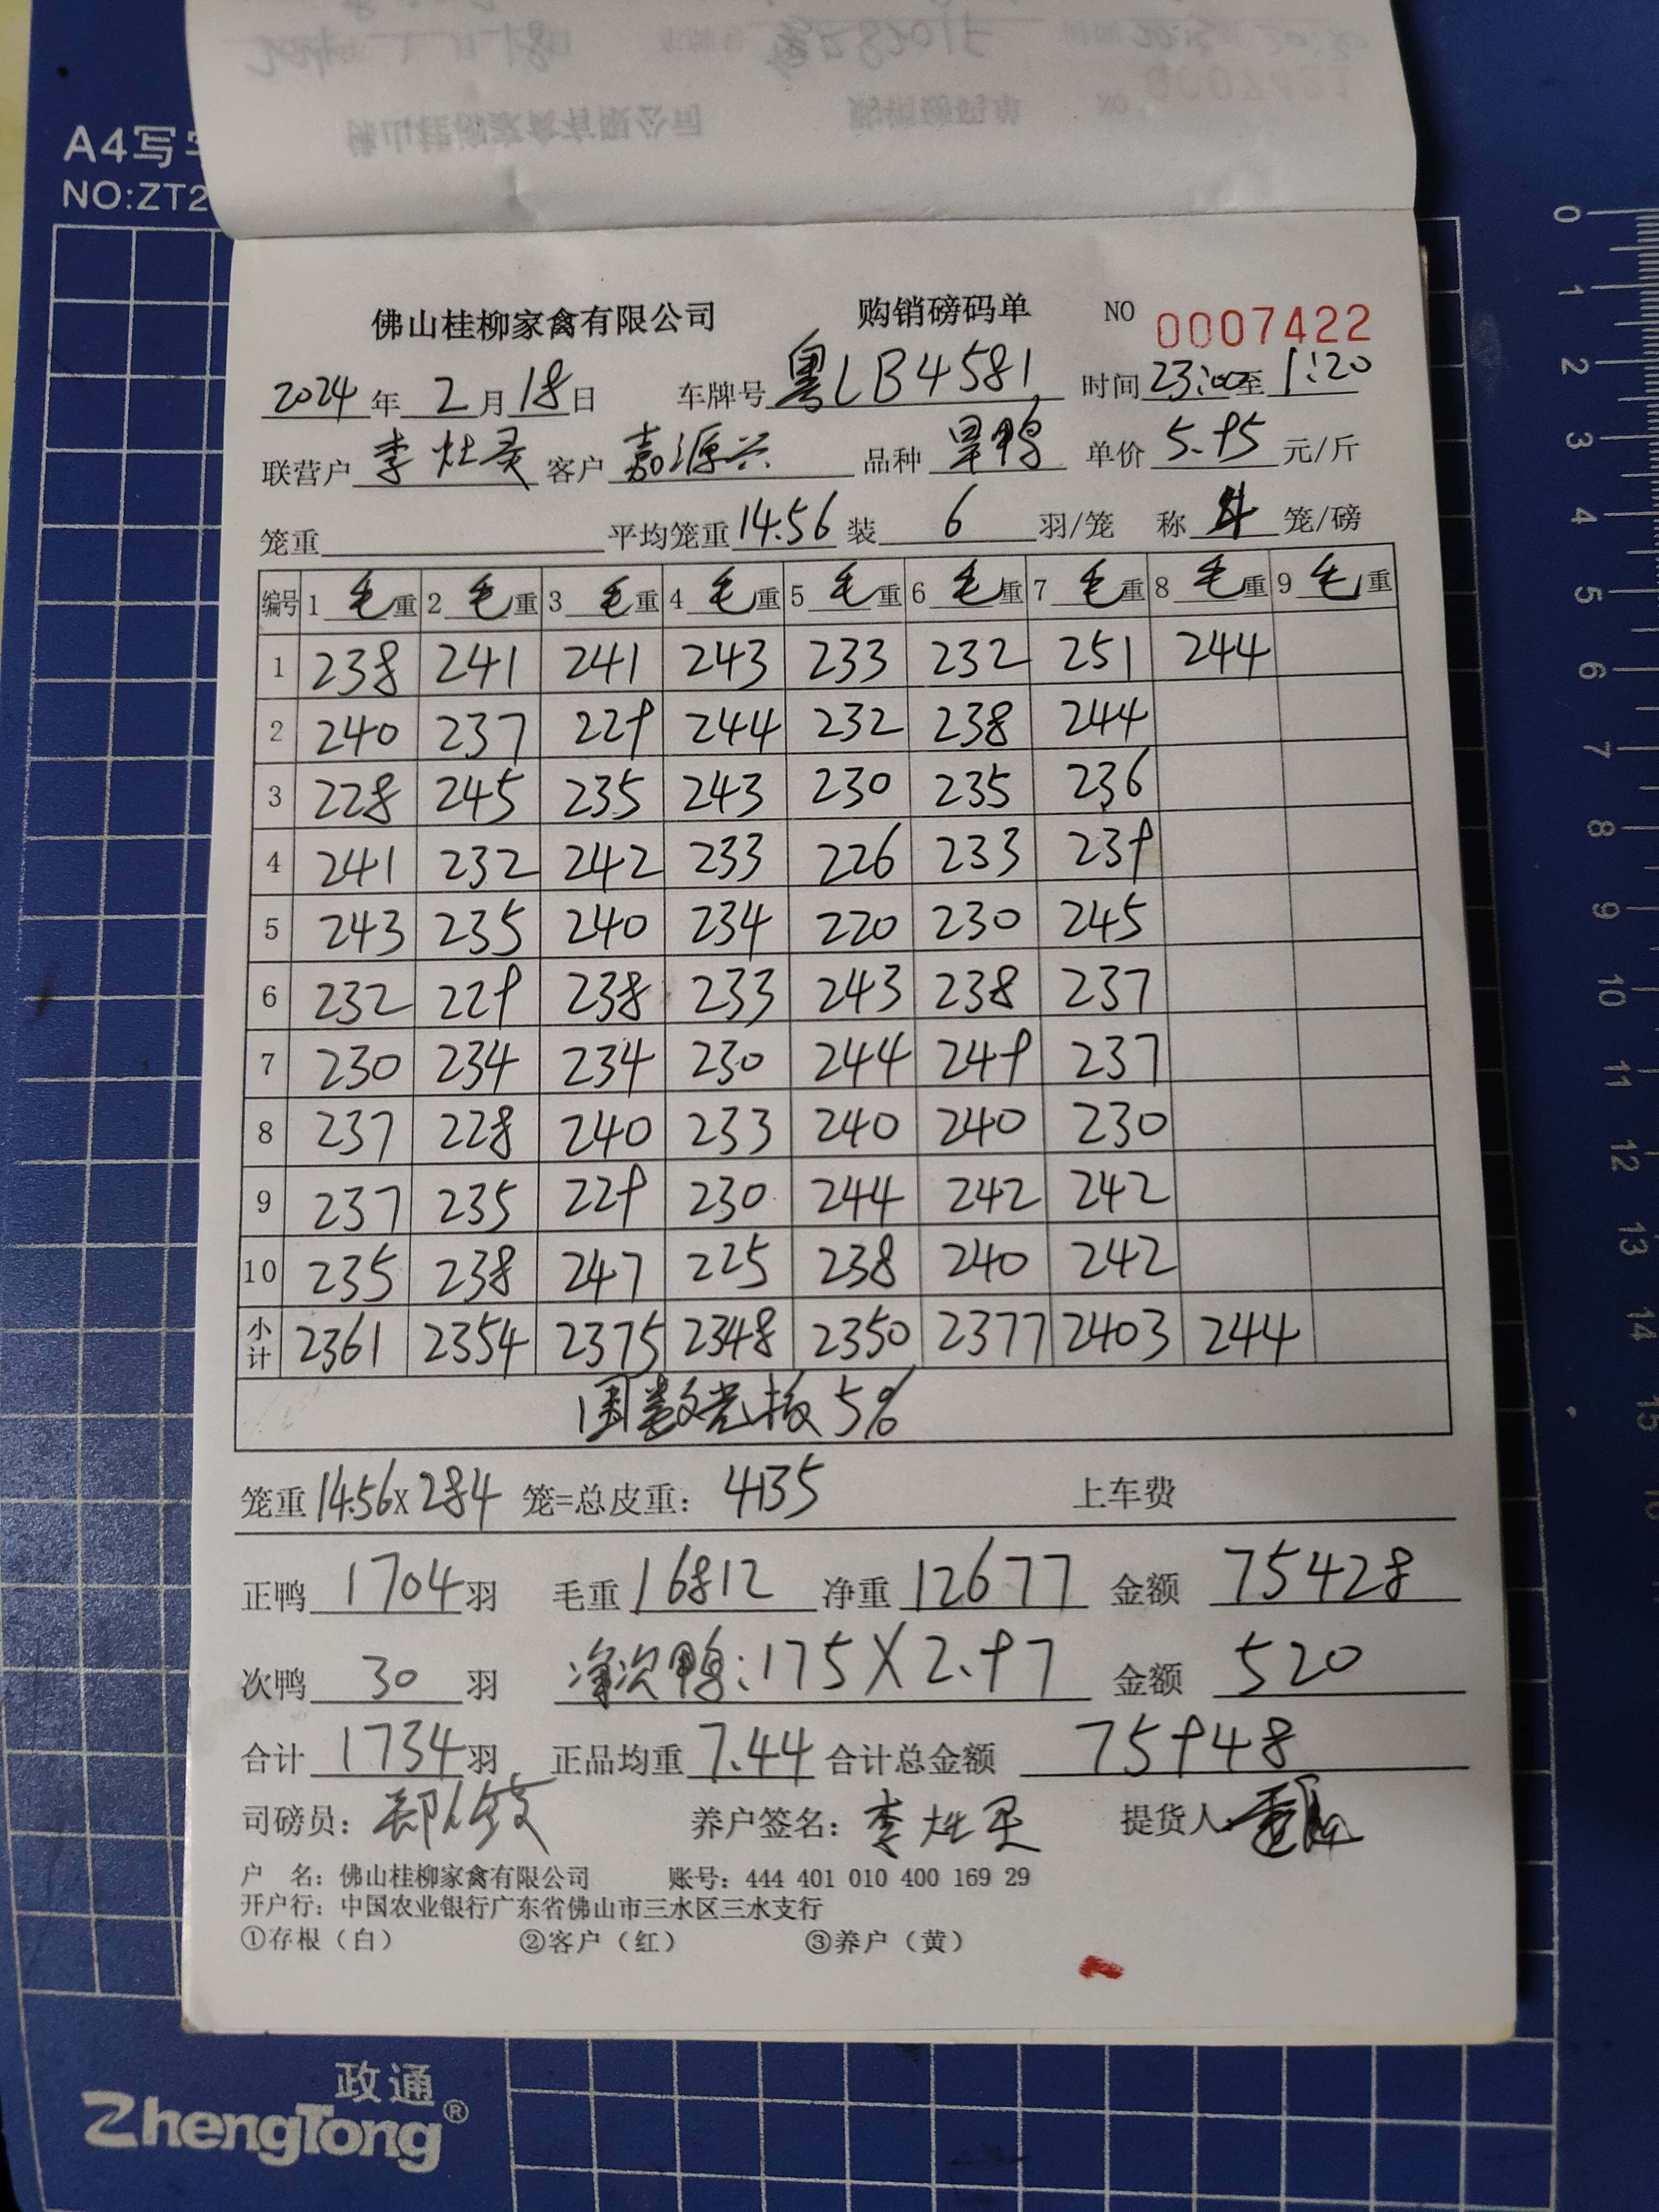 A4写字
NO:ZT2
佛山桂柳家禽有限公司 购销磅码单 NO 0007422
2024年 2月18日 车牌号 粤LB4581 时间 23:00至 1:20
联营户 李灶灵 客户 嘉源兴 品种 旱鸭 单价 5.95 元/斤
笼重 平均笼重 14.56 装 6 羽/笼 称 4 笼/磅
编号 1 毛重 2 毛重 3 毛重 4 毛重 5 毛重 6 毛重 7 毛重 8 毛重 9 毛重
1 238 241 241 243 233 232 251 244
2 240 237 229 244 232 238 244
3 228 245 235 243 230 235 236
4 241 232 242 233 226 233 239
5 243 235 240 234 220 230 245
6 232 229 238 233 243 238 237
7 230 234 234 230 244 249 237
8 237 228 240 233 240 240 230
9 237 235 229 230 244 242 242
10 235 238 247 225 238 240 242
小计 2361 2354 2375 2348 2350 2377 2403 244
5%
笼重 14.56x284 笼=总皮重: 4135 上车费
正鸭 1704 羽 毛重 16812 净重 12677 金额 75428
次鸭 30 羽 净次鸭:175X2.97 金额 520
合计 1734 羽 正品均重 7.44 合计总金额 75948
司磅员: 养户签名: 李灶灵 提货人:
户 名: 佛山桂柳家禽有限公司 账号: 444 401 010 400 169 29
开户行: 中国农业银行广东省佛山市三水区三水支行
①存根（白） ②客户（红） ③养户（黄）
政通
ZhengTong®
0
1
2
3
4
5
6
7
8
9
10
11
12
13
14
15
16